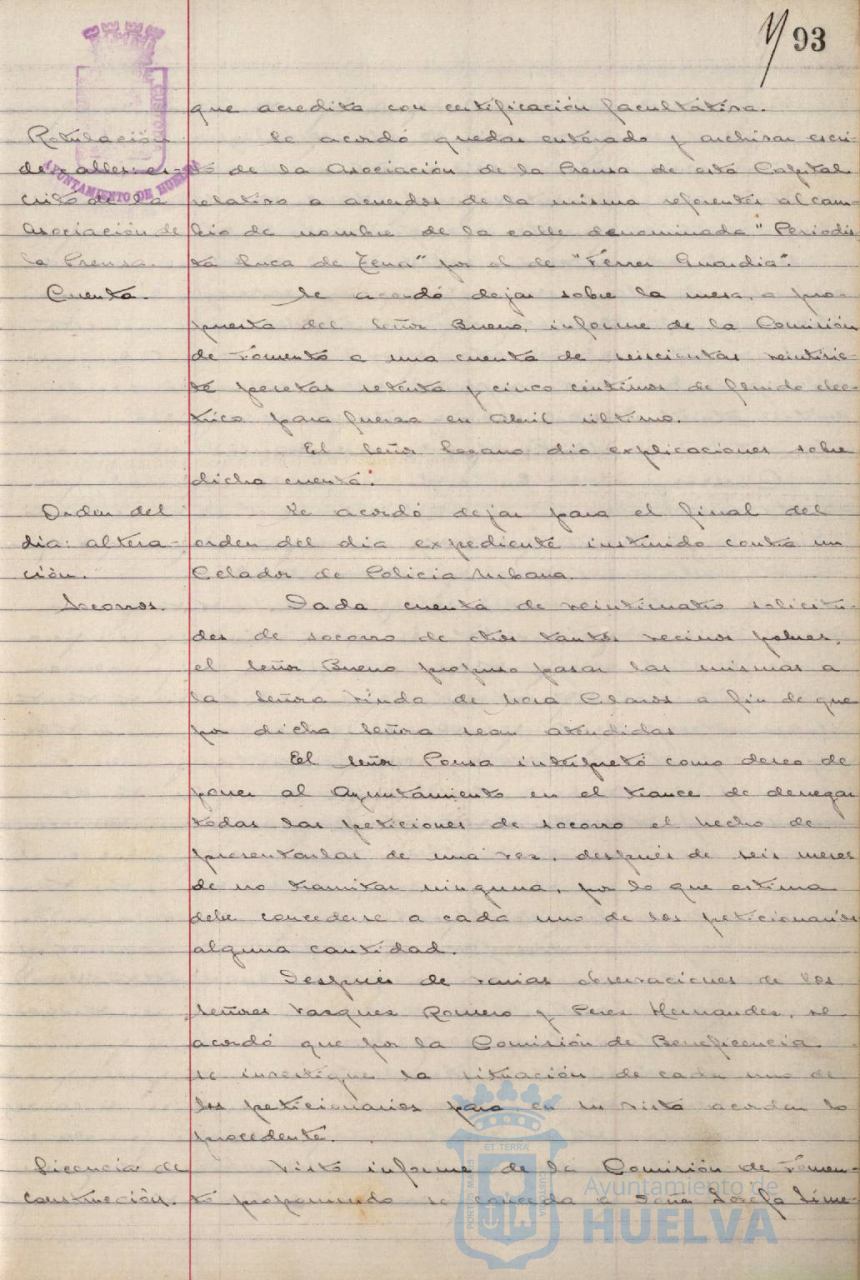 93
que acredita con certificación facultativa.
Rotulación
de calles: es-
crito de la
Asociación de
la Prensa.
Se acordó quedar enterado y archivar escri-
to de la Asociación de la Prensa de esta Capital
relativo a acuerdos de la misma referentes al cam-
bio de nombre de la calle denominada "Periodis-
ta Luca de Tena" por el de "Ferrer Guardia".
Cuenta.
Se acordó dejar sobre la mesa, a pro-
puesta del Señor Bueno, informe de la Comisión
de Fomento a una cuenta de seiscientas veintisie-
te pesetas setenta y cinco centimos de fluido elec-
trico para fuerza en Abril ultimo.
El Señor Lozano dio explicaciones sobre
dicha cuenta.
Orden del
dia: altera-
ción.
Se acordó dejar para el final del
orden del dia expediente instruido contra un
Celador de Policia Urbana.
Socorros.
Dada cuenta de veinticuatro solicitu-
des de socorro de otros tantos vecinos pobres,
el Señor Bueno propuso pasar las mismas a
la Señora Viuda de Mora Claros a fin de que
por dicha Señora sean atendidas
El Señor Ponsa interpretó como deseo de
poner al Ayuntamiento en el trance de denegar
todas las peticiones de socorro el hecho de
presentarlas de una vez, después de seis meses
de no tramitar ninguna, por lo que estima
debe concederse a cada uno de los peticionarios
alguna cantidad.
Después de varias observaciones de los
Señores Vazquez Romero y Perez Hernandez, se
acordó que por la Comisión de Beneficencia
se investigue la situación de cada uno de
los peticionarios para en su vista acordar lo
procedente.
Licencia de
construcción.
Visto informe de la Comisión de Fomen-
to proponiendo se conceda a Doña Josefa Jime-
AYUNTAMIENTO DE HUELVA
CUSTODIA
ET TERRA
PORTUS MARIS
CUSTODIA
Ayuntamiento de
HUELVA